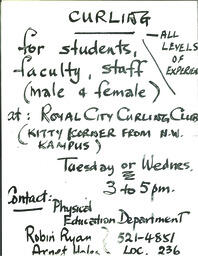 CURLING
for students,
faculty, staff
(male & female)
ALL
LEVELS
OF
at: ROYAL CITY CURLING CLUB
(KITTY KORNER FROM N.W.
KAMPUS)
Tuesday or Wednes.
3 to 5 pm.
Contact: Physical
Education Department
Robin Ryan } 521-4851
Arnet LOC. 236